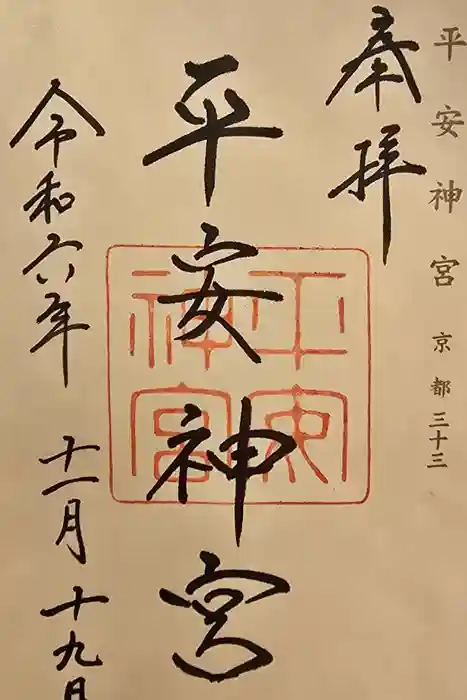 平安神宮 京都三十三
奉拝
平安神宮
平安神宮
令和六年 十一月 十九日